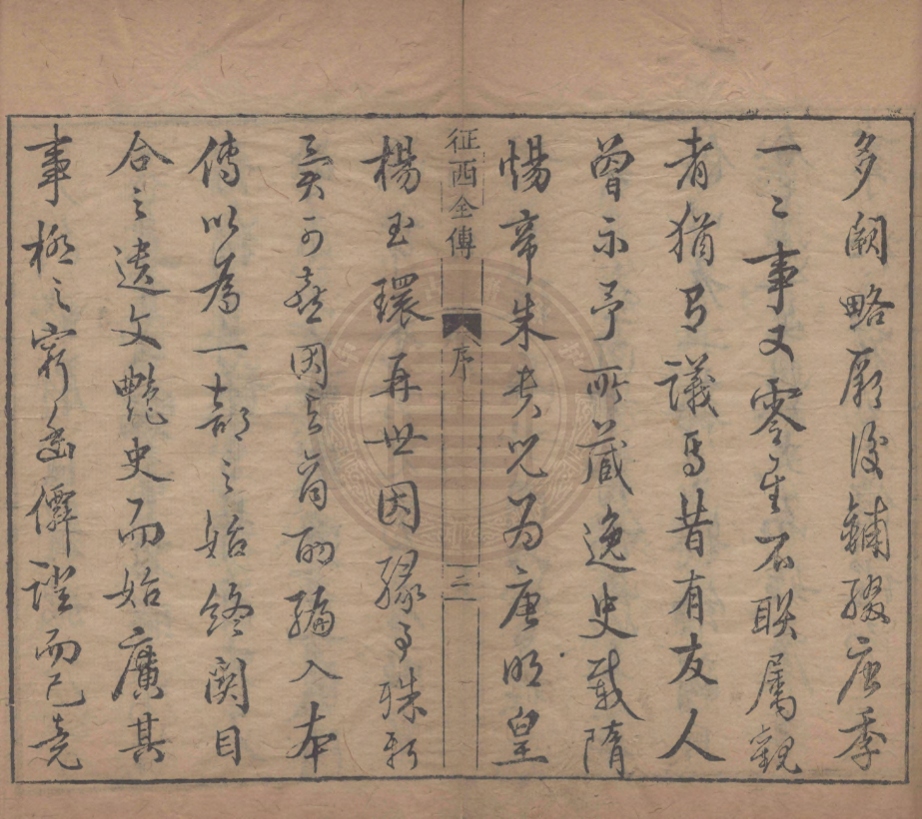 多闕略厥後鋪綴唐季
一二事又零星不聯屬觀
者猶有議焉昔有友人
曾示予所藏逸史載隋
煬帝朱貴兒为唐明皇
征西全傳 序 二
楊玉環再世因緣事殊新
異可喜因與商酌編入本
傳以為一部之始終関目
合之遺文艷史而始廣其
事極之窮幽僻證而已竟